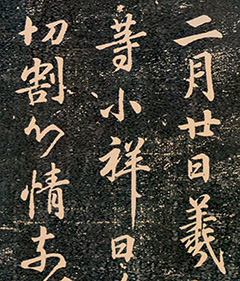 二月廿日羲
等小祥日
切割心情